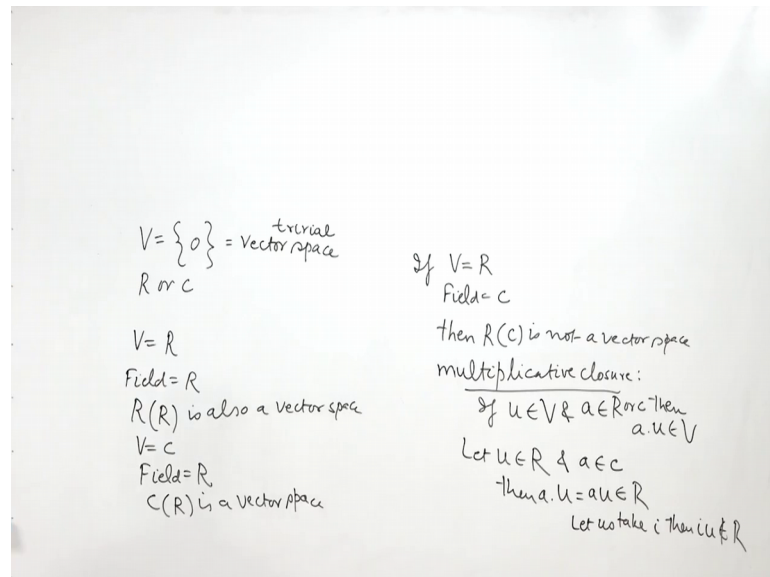 trivial
V = {0} = vector space
R or C
V = R
Field = R
R(R) is also a vector space
V = C
Field = R
C(R) is a vector space
If V = R
Field = C
then R(C) is not a vector space
multiplicative closure:
If u ∈ V & a ∈ R or C then
a.u ∈ V
Let u ∈ R & a ∈ C
then a.u = au ∈ R
Let us take i then iu ∉ R